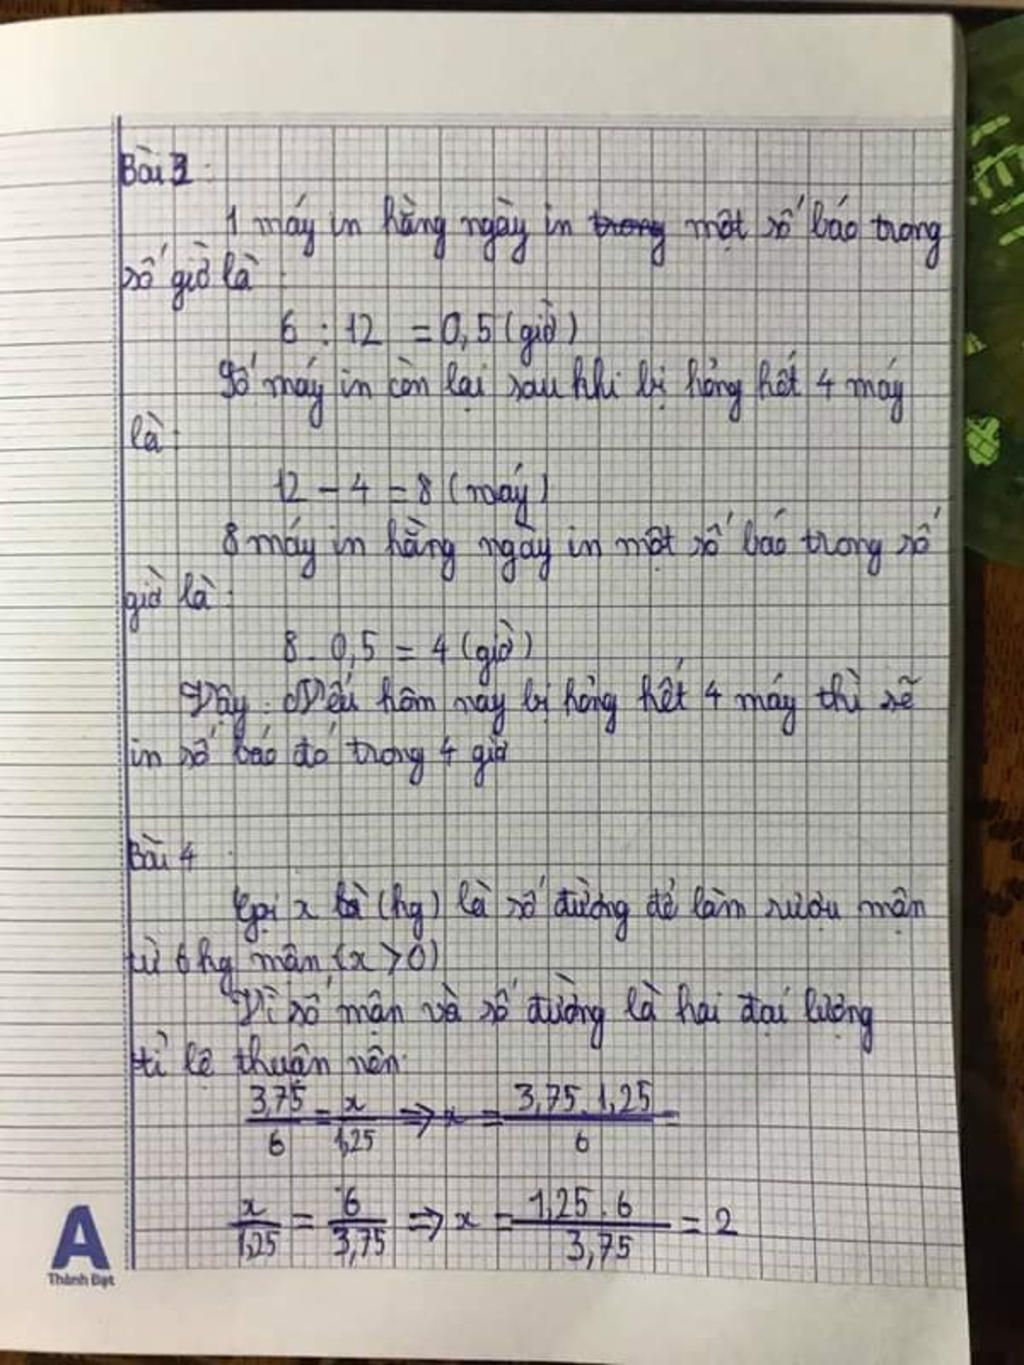 Bài 3 :
1 máy in hằng ngày in trong một số báo trong
số giờ là :
6 : 12 = 0,5 (giờ)
Số máy in còn lại sau khi bị hỏng hết 4 máy
là :
12 - 4 = 8 (máy)
8 máy in hằng ngày in một số báo trong số
giờ là :
8 . 0,5 = 4 (giờ)
Vậy : Nếu hôm nay bị hỏng hết 4 máy thì sẽ
in số báo đó trong 4 giờ
Bài 4 :
Gọi x là (kg) là số đường để làm rượu mận
từ 6 kg mận (x > 0)
Vì số mận và số đường là hai đại lượng
tỉ lệ thuận nên:
3,75/6 = x/1,25 => x = 3,75 . 1,25/6 =
x/1,25 = 6/3,75 => x = 1,25 . 6/3,75 = 2
A
Thành Đạt